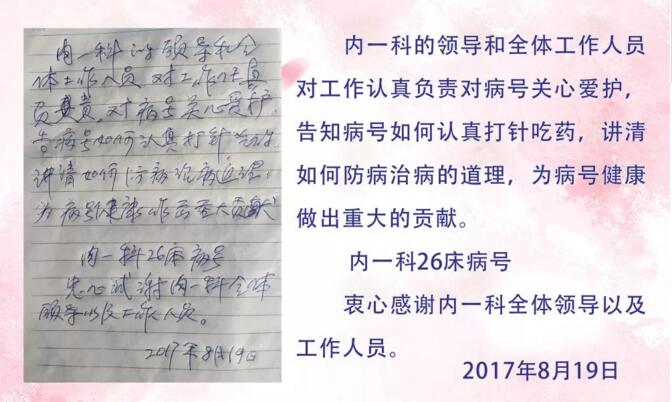 内一科的领导和全
体工作人员对工作认真
负责,对病号关心爱护,
告病号如何认真打针吃药
讲清如何防病治病道理。
为病号健康作出重大贡献
内一科26床病号
衷心感谢内一科全体
领导以及工作人员。
2017年8月19日
内一科的领导和全体工作人员
对工作认真负责对病号关心爱护,
告知病号如何认真打针吃药,讲清
如何防病治病的道理,为病号健康
做出重大的贡献。
内一科26床病号
衷心感谢内一科全体领导以及
工作人员。
2017年8月19日